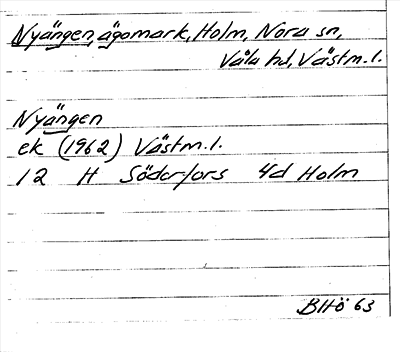 Nyängen, ägomark, Holm, Nora sn,
Våla hd, Västm.l.
Nyängen
ek (1962) Västm.l.
12 H Söderfors 4d Holm
BHö 63